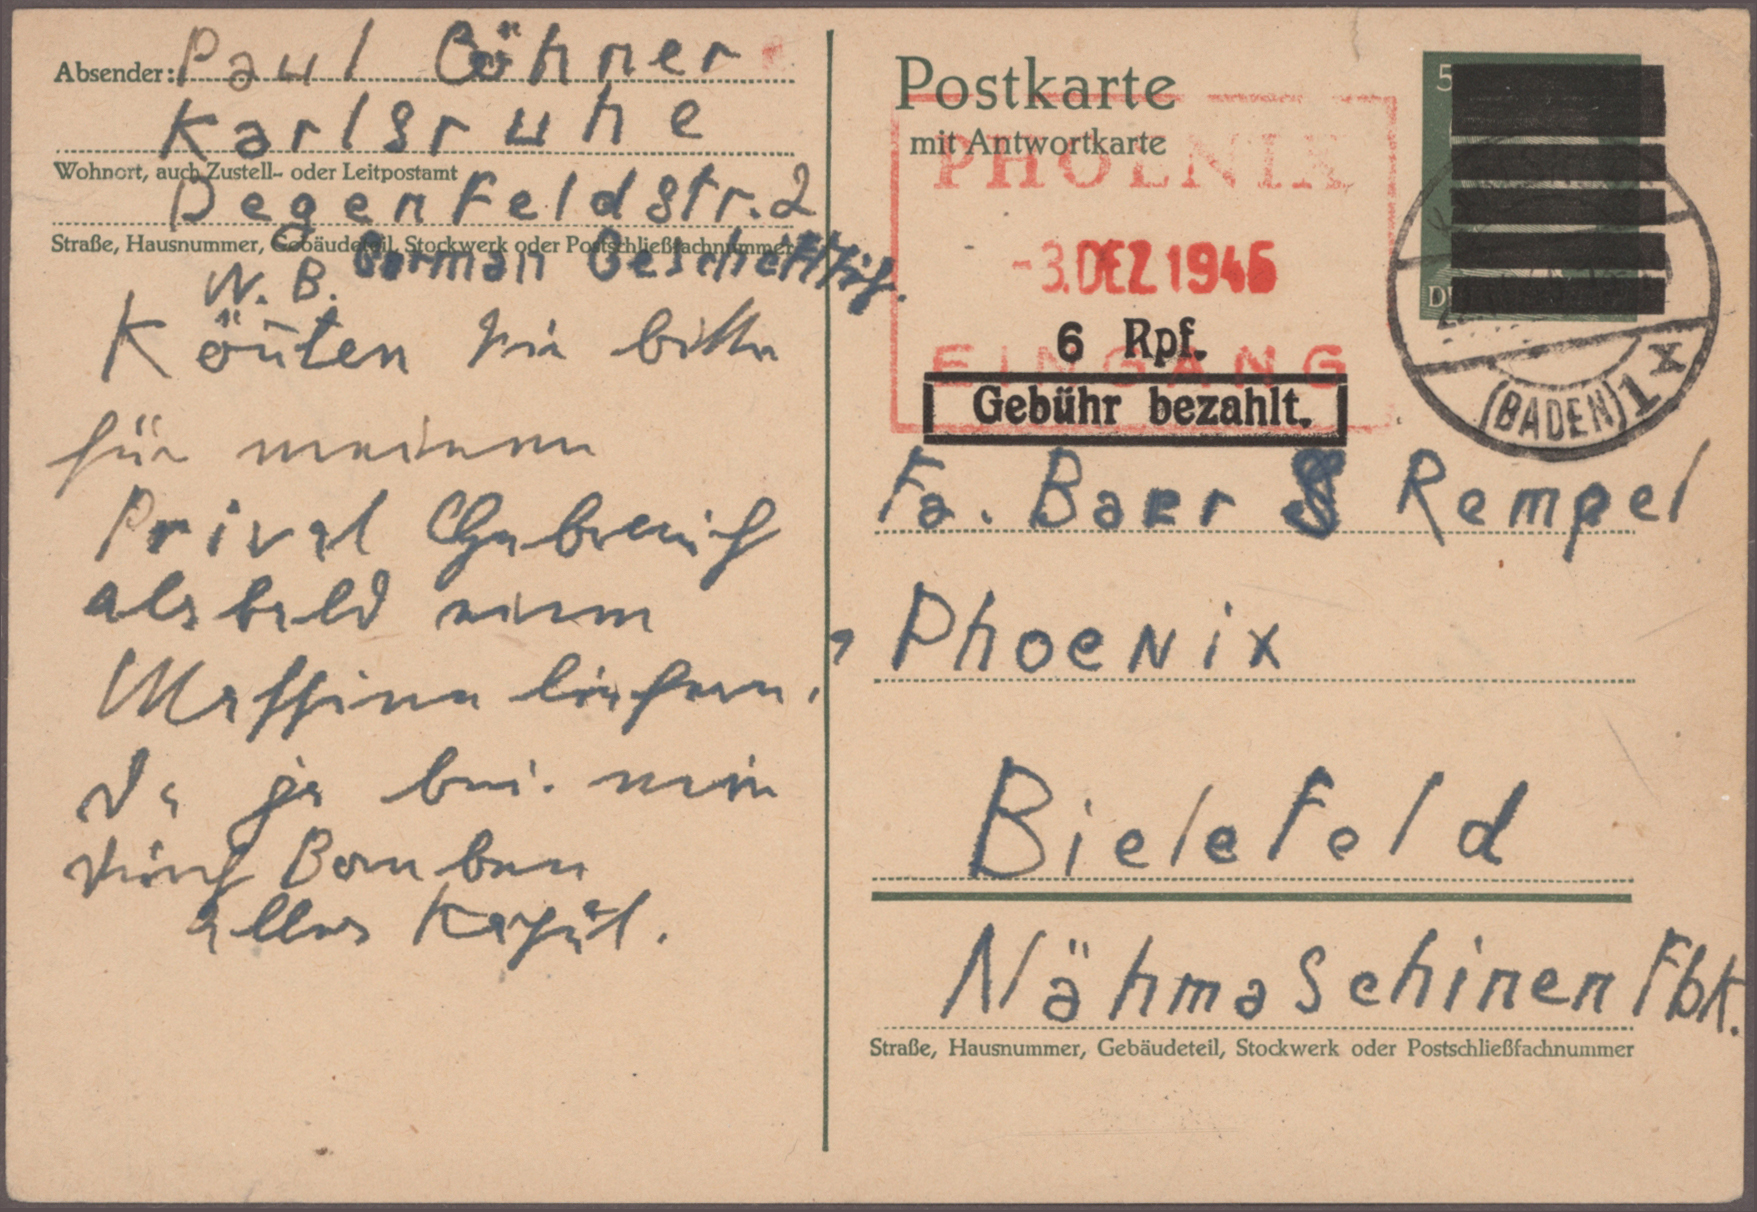 Absender: Paul Göhner
Karlsruhe
Wohnort, auch Zustell- oder Leitpostamt
Degenfeldstr. 2
Straße, Hausnummer, Gebäudeteil, Stockwerk oder Postschließfachnummer
W. B. German
Könten Sie bitte
für meinen
Privat Gebrauch
alsbald einen
Maschine liefern,
da ja bei mir
durch Bomben
alles Kaput.
Postkarte
mit Antwortkarte
PHOENIX
-3. DEZ 1946
EINGANG
6 Rpf.
Gebühr bezahlt.
5
(BADEN) 1 x
Fa. Baer & Rempel
Phoenix
Bielefeld
Nähmaschinen Fbk.
Straße, Hausnummer, Gebäudeteil, Stockwerk oder Postschließfachnummer